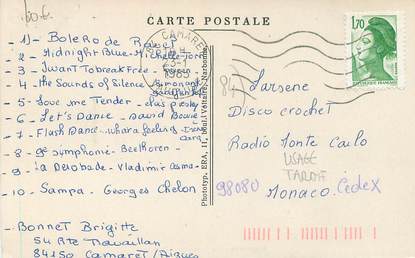 60 €
CARTE POSTALE
1) Bolero de Ravel
2 - Midnight Blue - Michelle Torr
3 - I want To break Free - Queen
4 - The Sounds of Silence - Simon and Garfunkel
5 - Love me Tender - Elvis presley
6 - Let's Dance - David Bowie
7 - Flash Dance - what a feeling - Irene Cara
8 - 9e symphonie - Beethoven
9 - La Dérobade - Vladimir Cosma
10 - Sampa - Georges Chelon
Bonnet Brigitte
84150 Camaret/Aigues
CAMARET
1985
Phototyp. ERA, 11, boul. Voltaire, Narbonne
1,70
84)
Larsene
Disco crochet
Radio Monte Carlo
USAGE
TARDIF
98080
Monaco. Cédex